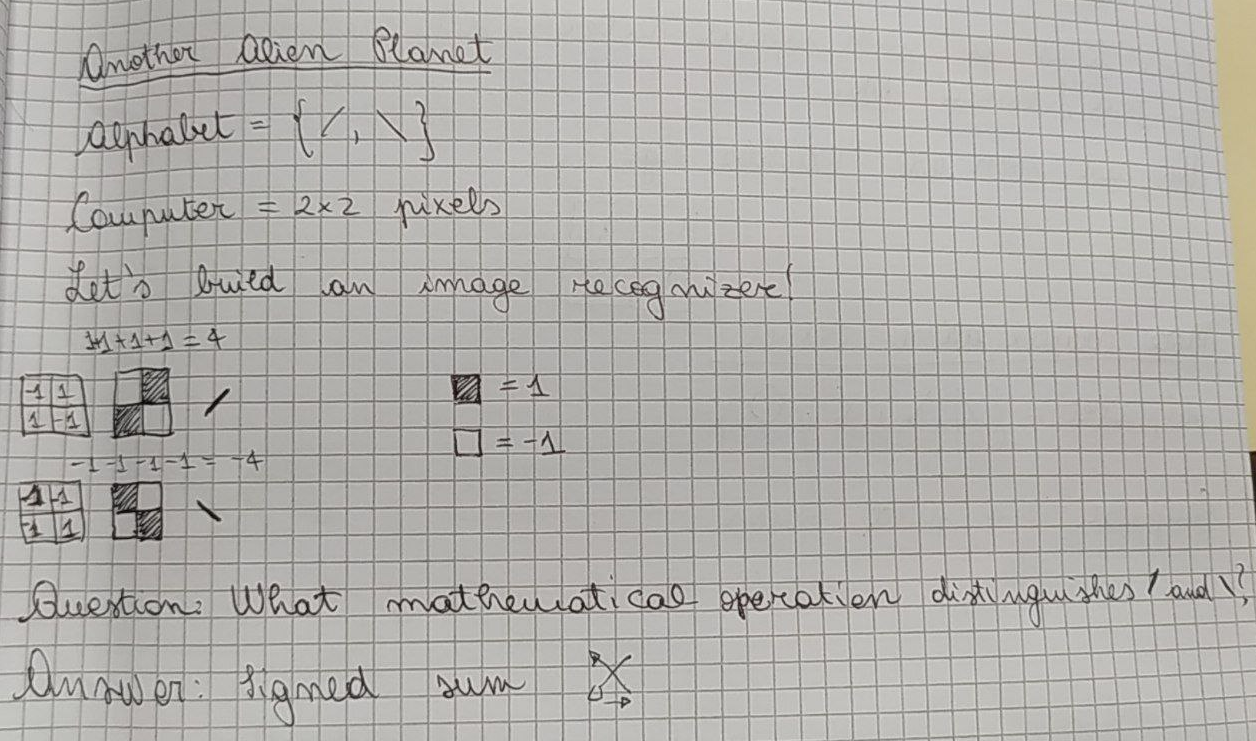 Another Alien Planet
Alphabet = {/, \}
Computer = 2x2 pixels
Let's build an image recognizer!
1+1+1+1 = 4
-1 1
1 -1
= 1
= -1
-1-1-1-1 = -4
1 -1
-1 1
Question: What mathematical operation distinguishes / and \?
Answer: Signed sum